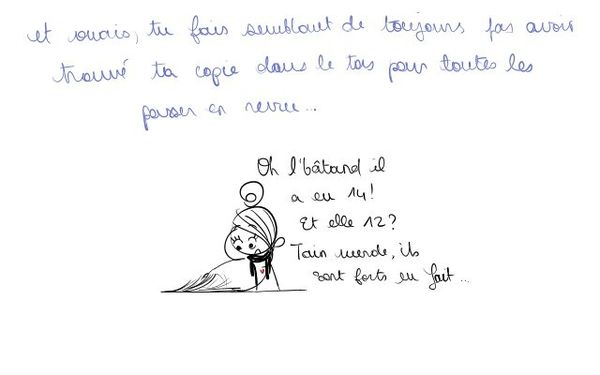 et ouais, tu fais semblant de toujours pas avoir
trouvé ta copie dans le tas pour toutes les
passer en revue...
Oh l'bâtard il
a eu 14!
Et elle 12?
Tain merde, ils
sont forts en fait...